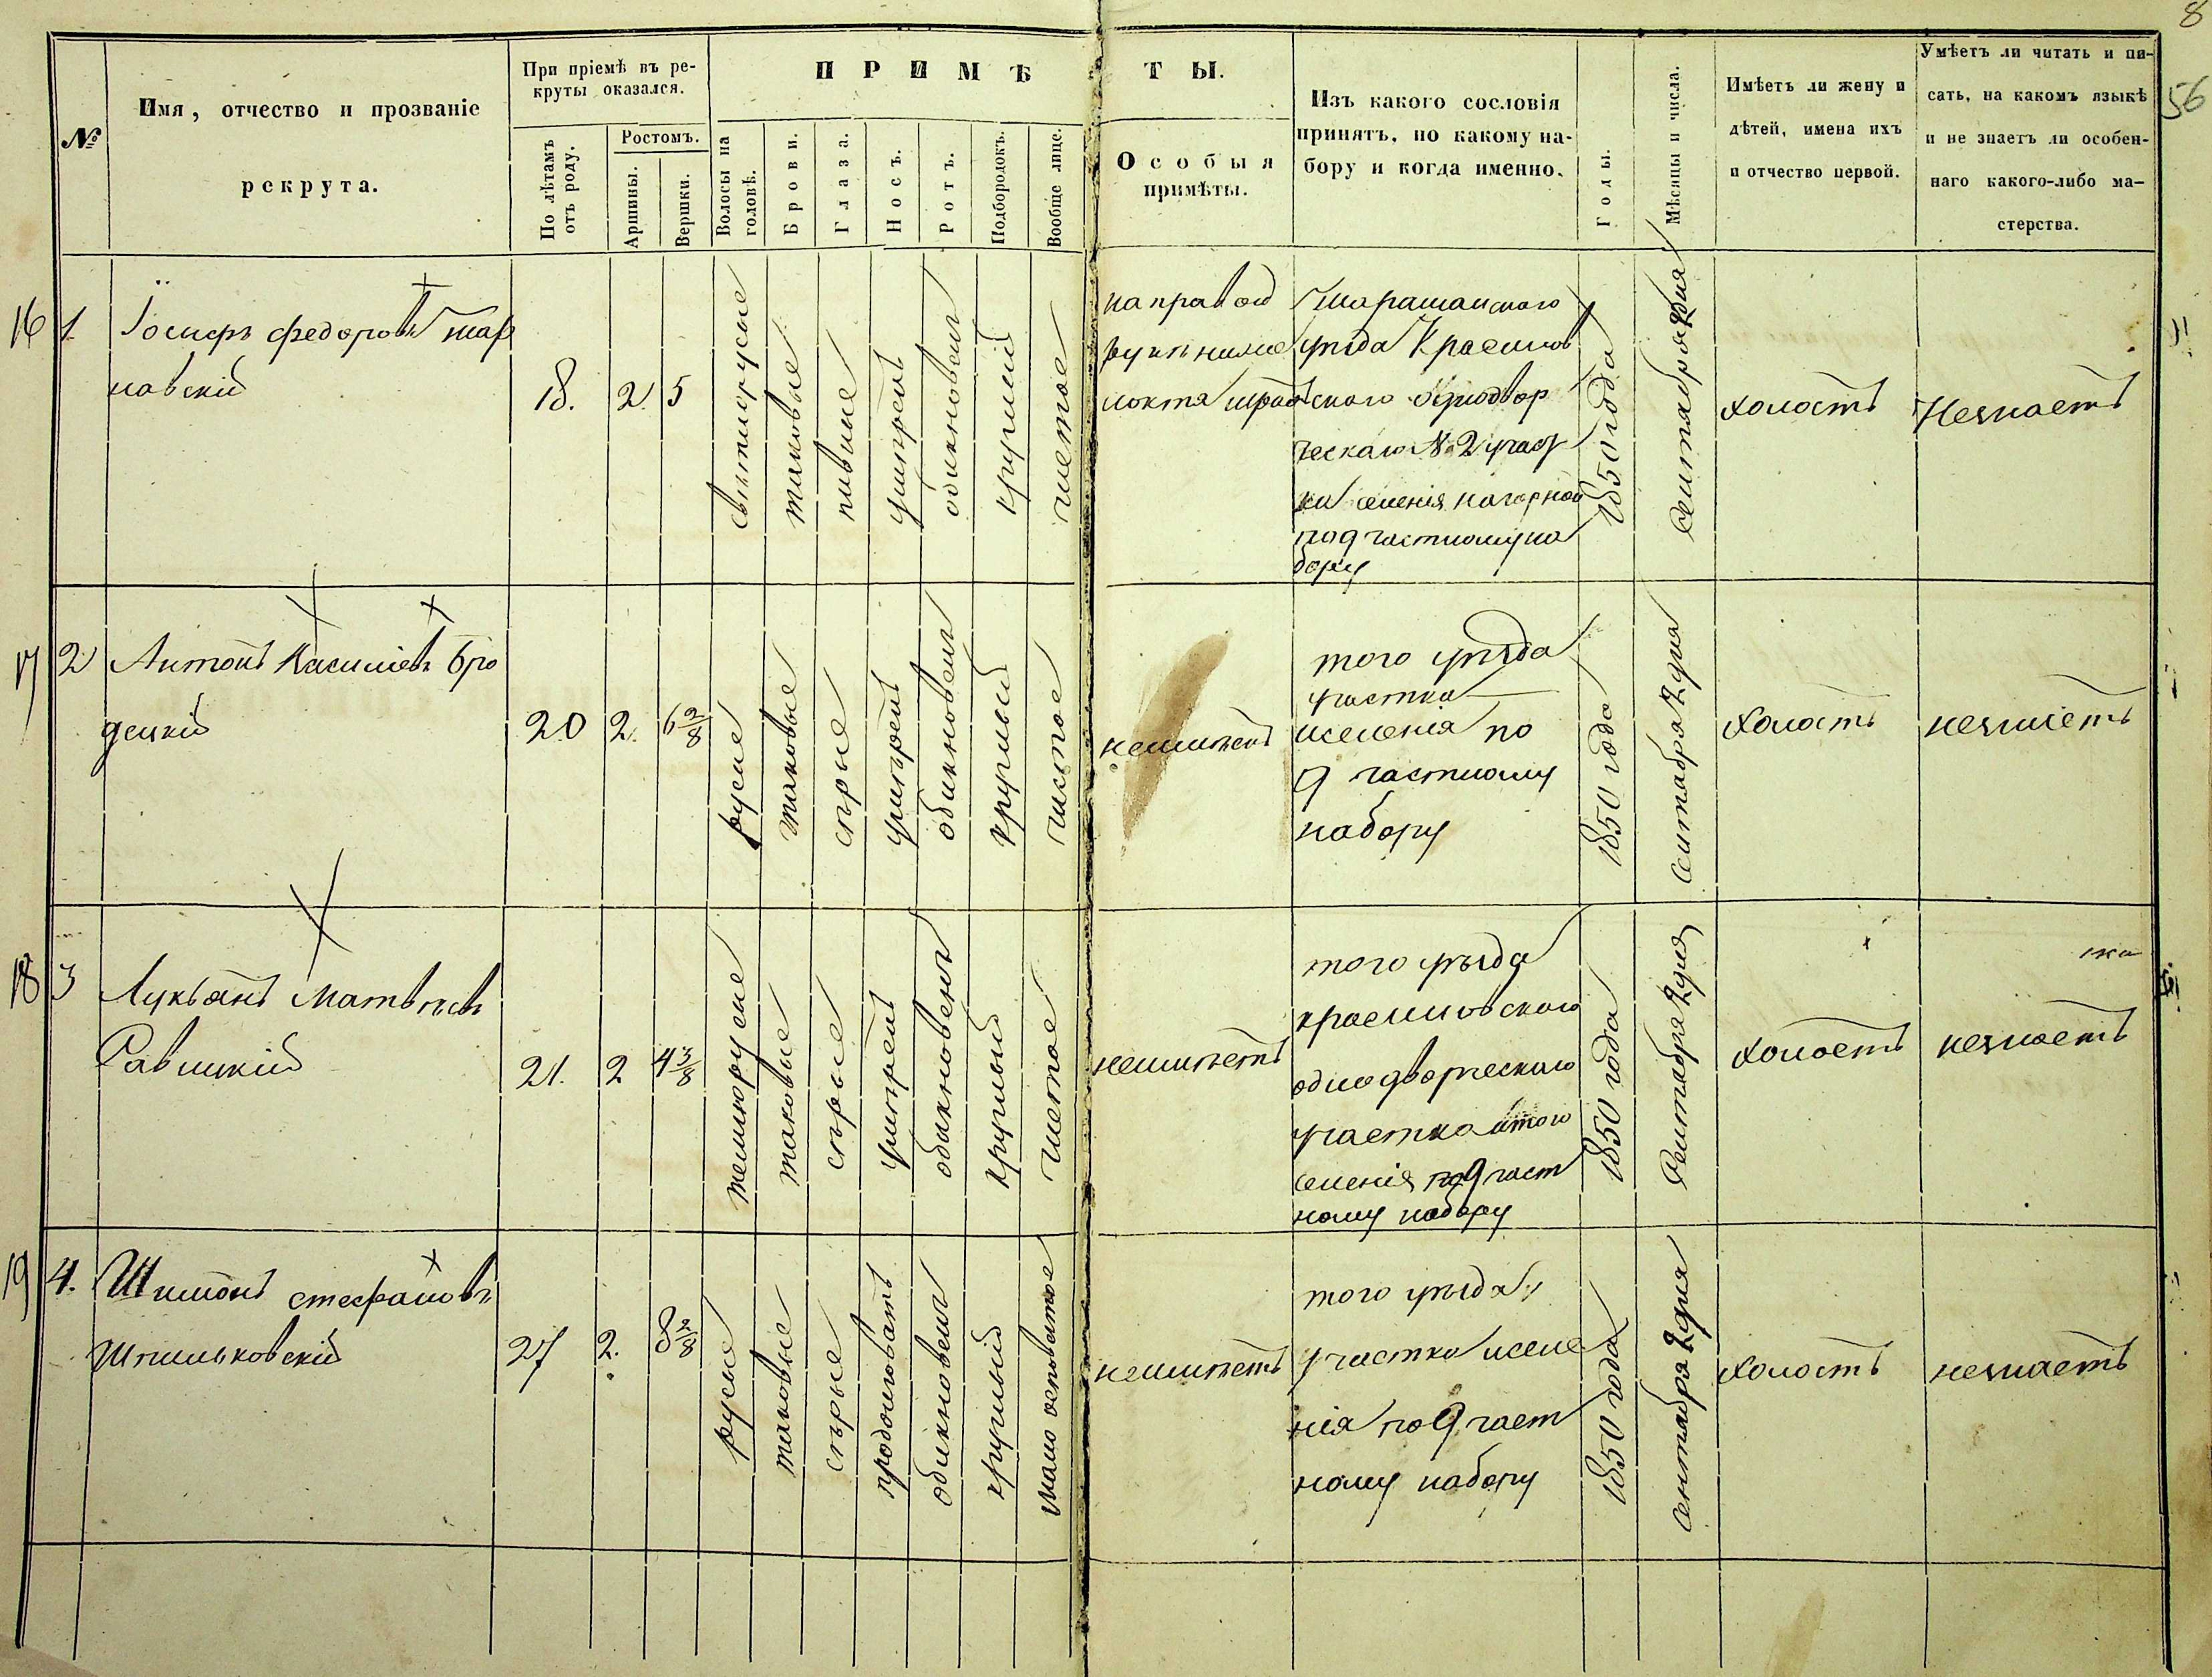 8
56
№
Имя, отчество и прозваніе
рекрута.
При пріемѣ въ ре-
круты оказался.
По лѣтамъ
отъ роду.
Ростомъ.
Аршины.
Вершки.
ПРИМѢТЫ.
Волосы на
головѣ.
Брови.
Глаза.
Носъ.
Ротъ.
Подбородокъ.
Вообще лице.
Особыя
примѣты.
Изъ какого сословія
принятъ, по какому на-
бору и когда именно.
Годы.
Мѣсяцы и числа.
Имѣетъ ли жену и
дѣтей, имена ихъ
и отчество первой.
Умѣетъ ли читать и пи-
сать, на какомъ языкѣ
и не знаетъ ли особен-
наго какого-либо ма-
стерства.
16
1
Іосифъ федоровъ Тар
навскій
18.
2
5
свѣтлорусые
таковые
умѣренъ
обикновенъ
круглый
чистое
на правой
рукѣ ниже
локтя
Таращанскаго
уѣзда
однодвор
ческаго № 2 участ
ка селенія
по 9 частному на
бору
1850 года
Сентабря 2 дня
холостъ
Незнаетъ
17
2
Антонъ Касиміевъ Бро
децкій
20
2.
6 2/8
русые
таковые
сѣрые
умѣренъ
обикновенъ
круглый
чистое
неимѣетъ
того уѣзда
участка
иселенія по
9 частному
набору
1850 года
Сентабря 2 дня
холостъ
незнаетъ
18
3
Лукьянъ Матвѣевъ
Равицкій
21.
2
4 3/8
темнорусые
таковые
сѣрые
умѣренъ
обикновенъ
круглый
чистое
неимѣетъ
того уѣзда
красиловскаго
однодворческаго
участка итого
селенія по 9 част
ному набору
1850 года
Сентабря 2 дня
холостъ
незнаетъ
19
4.
Шимонъ стефановъ
Шпильковскій
27
2.
8 2/8
русые
таковые
сѣрые
продолговатъ
обикновенъ
круглый
мало осповатое
неимѣетъ
того уѣзда
участка иселе
нія по 9 част
ному набору
1850 года
Сентабря 2 дня
холостъ
незнаетъ